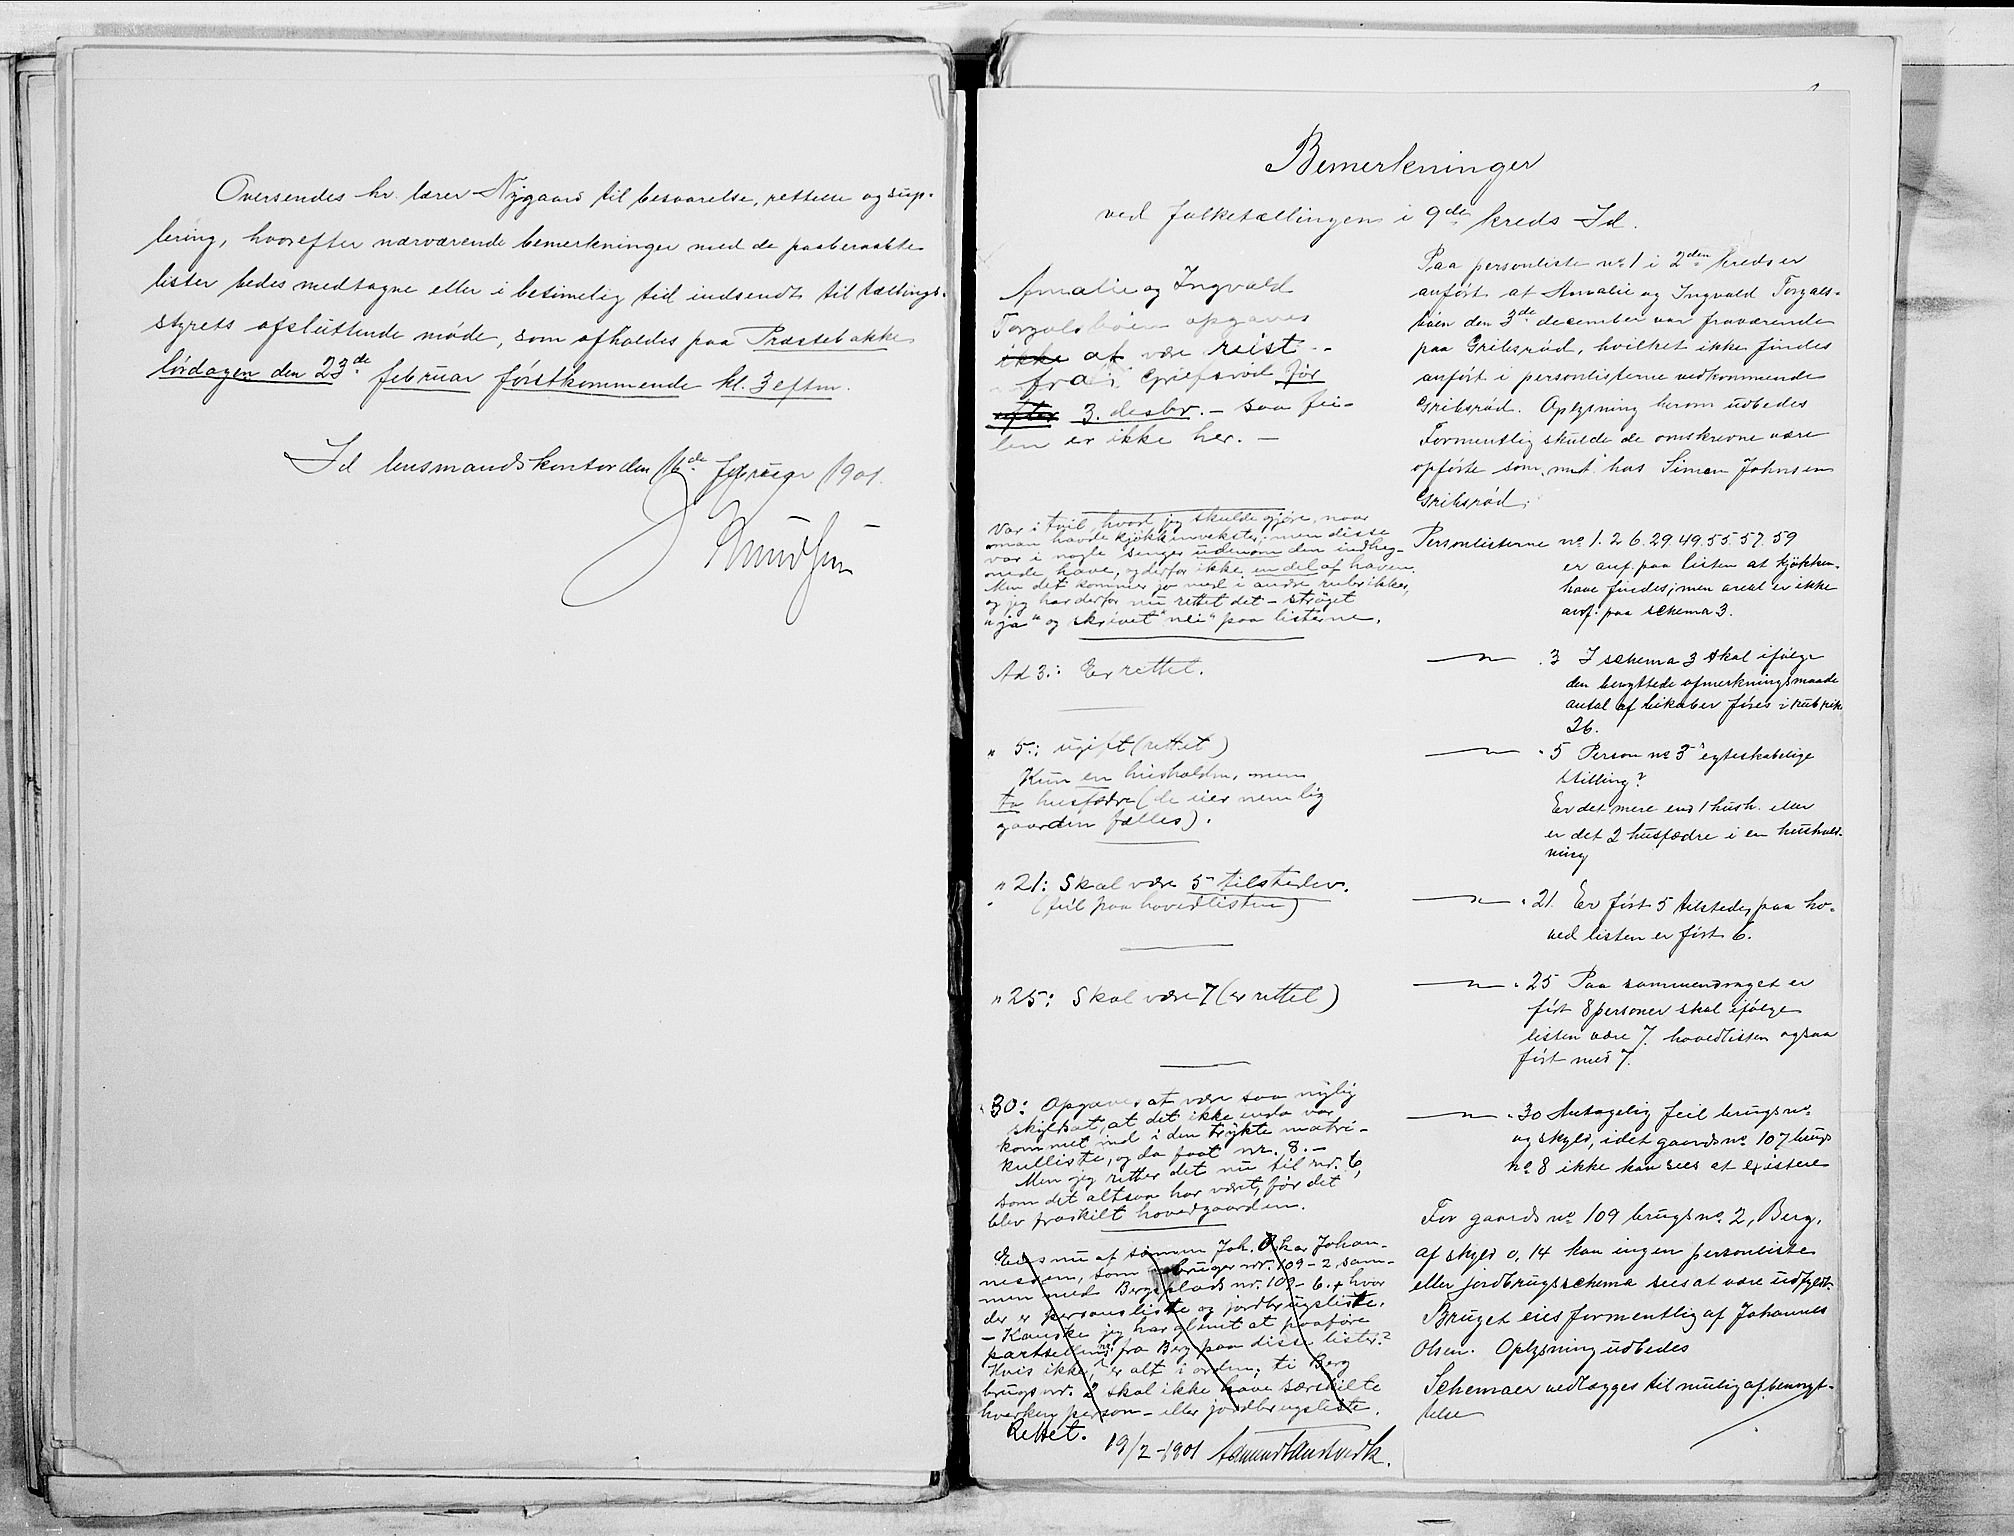 Oversendes hr. lærer Nygaard til besvarelse, rettelse og sup-
lering, hvorefter nærværende bemerkninger med de paaberaabte
lister bedes medtagne eller i betimelig tid indsendt til tællings-
styrets afsluttende møde, som afholdes paa Præstebakke
lørdagen den 23de februar førstkommende kl. 3 eftm.
Id lensmandskontor den 16de februar 1901.
J Knudsen
Bemerkninger
ved folketællingen i 9de kreds Id.
Amalie og Ingvald
Torgalsbøen opgaves
ikke at være reist
fra Griefsrød før
efter 3. desbr. - saa fei-
len er ikke her. -
Var i tvil, hvad jeg skulde gjøre, naar
man havde kjøkkenvekster; men disse
var i nogle senger udenom den indheg-
nede have, og derfor ikke en del af haven.
Men det kommer jo med i andre rubrikker,
og jeg har derfor nu rettet det - strøget
"ja" og skrivet "nei" paa listerne.
Ad 3.: Er rettet.
" 5.: ugift (rettet)
Kun en husholdn. men
to husfædre (de eier nemlig
gaarden fælles).
" 21: Skal være 5 tilstedev.
(feil paa hovedlisten)
" 25: Skal være 7 (er rettet)
" 30: Opgaves at være saa nylig
skyldsat, at det ikke enda var
kommet ind i den trykte matri-
kulliste, og da faat nr. 8. -
Men jeg retter det nu til nr. 6,
som det altsaa har været, før det
blev fraskilt hovedgaarden.
Eies nu af samme Joh. Oskar Johan-
nessen, som bruger nr. 109-2 sam-
men med Bergsplads nr. 109-6, hvor
der er personsliste og jordbrugsliste.
- Kanske jeg har glemt at paaføre
partsellen fra Berg paa disse lister?
Hvis ikke, er alt i orden; ti Berg
brugs nr. 2 skal ikke have særskilte
hverken person- eller jordbrugsliste.
Rettet.
19/2-1901
Paa personliste no 1 i 2den kreds er
anført at Amalie og Ingvald Torgals-
bøen den 3de december var fraværende
paa Gribsrød, hvilket ikke findes
anført i personlisterne vedkommende
Gribsrød. Oplysning herom udbedes
Formentlig skulde de omskrevne være
opførte som mt hos Simen Johnsen
Gribsrød.
Personlisterne no 1. 2 6. 29 49. 55. 57. 59
er anf. paa listen at kjøkken-
have findes; men areal er ikke
anf. paa schema 3.
—"— . 3 I schema 3 skal ifølge
den benyttede afmerkningsmaade
antal af bikuber føres i rubrik
26.
—"— " 5 Person no 3's egteskabelige
stilling?
Er det mere end 1 hush. eller
er det 2 husfædre i en hushold-
ning
—"— " 21. Er ført 5 tilstede, paa ho-
ved listen er ført 6.
—"— " 25 Paa sammendraget er
ført 8 personer skal ifølge
listen være 7. hovedlisten ogsaa
ført med 7.
—"— " 30 Antagelig feil brugs no
og skyld, idet gaards no 107 brugs
no 8 ikke kan sees at existere
For gaards no 109 brugs no 2, Berg,
af skyld 0,14 kan ingen personliste
eller jordbrugsschema sees at være udfyldt.
Bruget eies formentlig af Johannes
Olsen. Oplysning udbedes
Schemaer vedlægges til mulig afbenyt-
telse